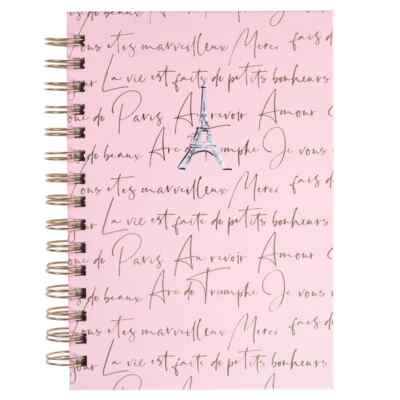 Vous etes marveilleux Merci fais de
La vie est faite de petits bonheurs
de Paris Au revoir Amour C
de beaux Arc de Triomphe Je vous
Vous etes marveilleux Merci fais
La vie est faite de petits bonheurs
de Paris Au revoir Amour C
de beaux Arc de Triomphe Je vous
Vous etes marveilleux Merci fais
La vie est faite de petits bonheurs